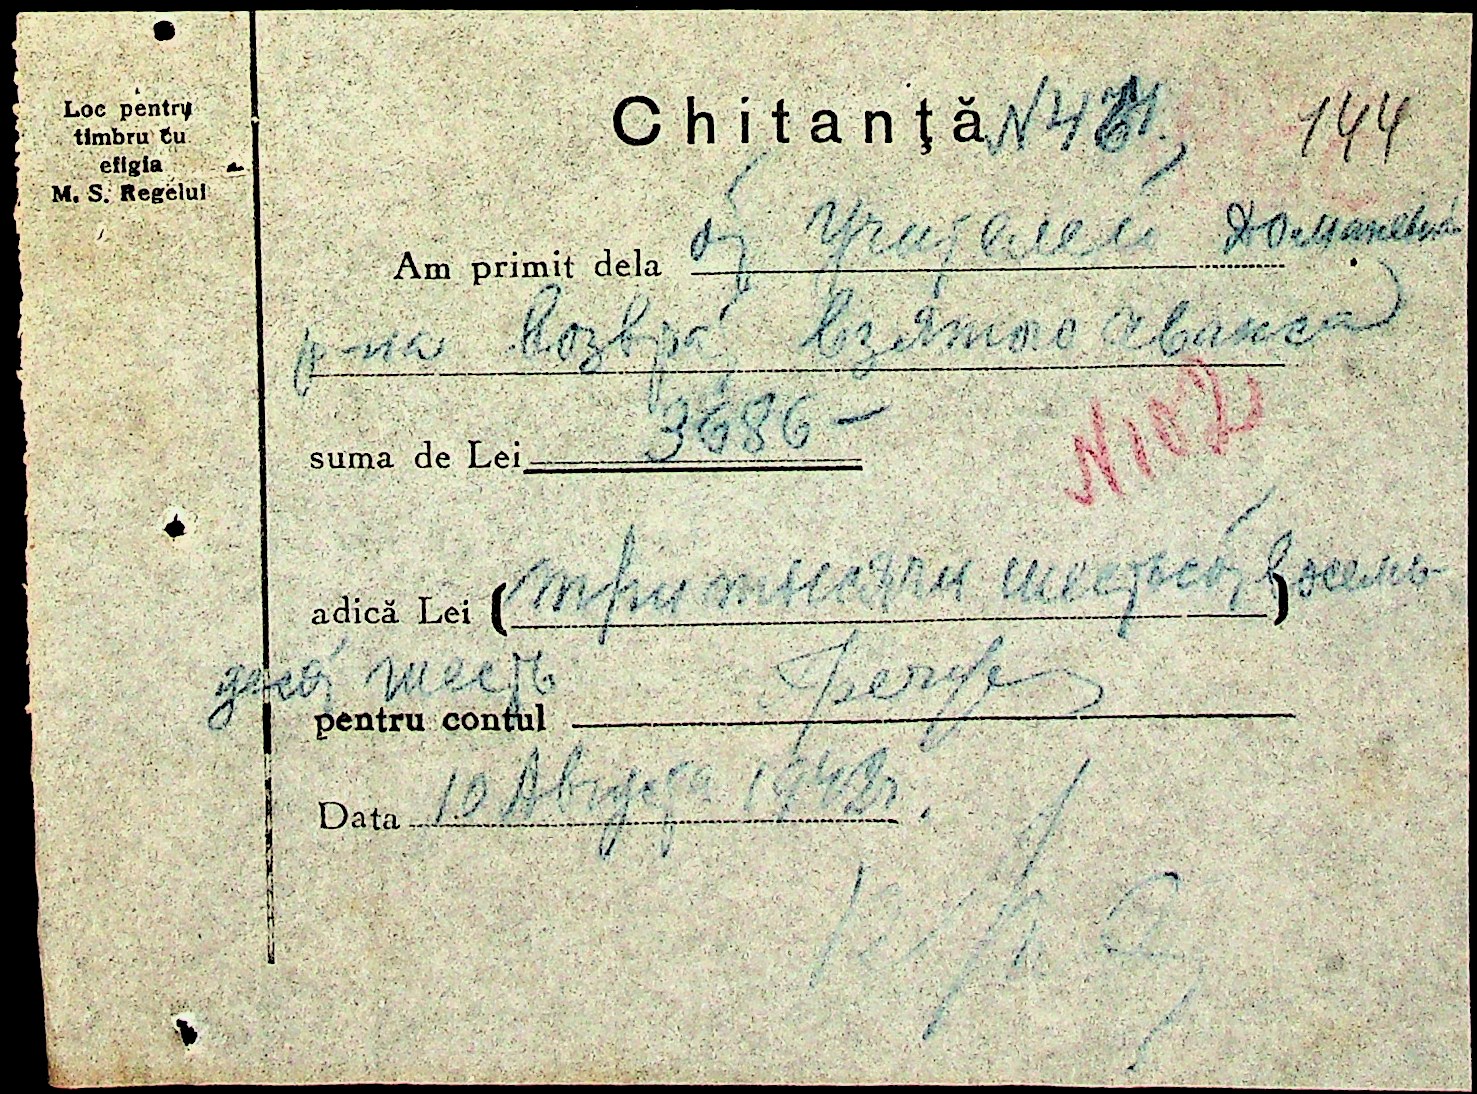 Loc pentru
timbru cu
efigia
M. S. Regelui
Chitanţă N 144
Am primit dela от Учителей Доманевск
р-на возврат взятого аванса
suma de Lei 3686 —
N 102
adică Lei (три тысячи шестьсот восемь)
десят шесть
pentru contul
Data 10 Августа 1943 г.